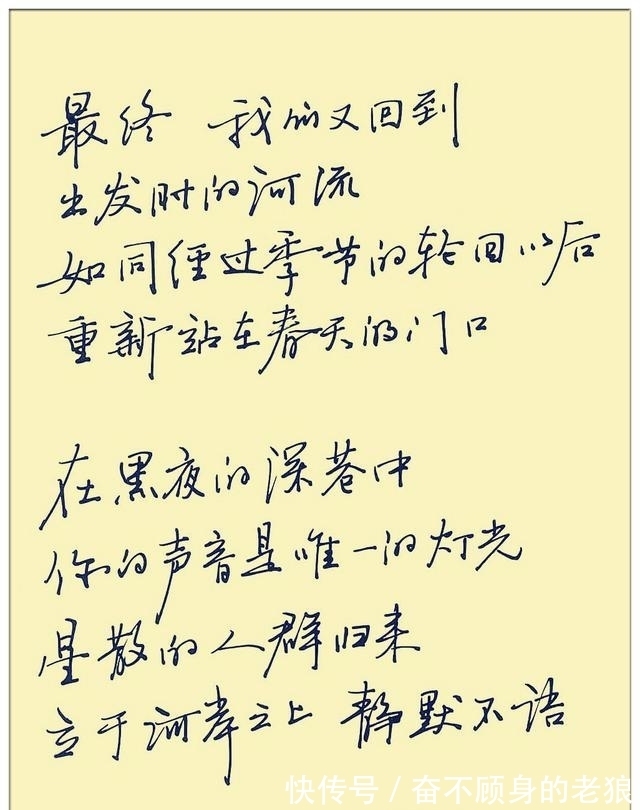 最终 我们又回到
出发时的河流
如同经过季节的轮回以后
重新站在春天的门口
在黑夜的深巷中
你的声音是唯一的灯光
星散的人群归来
立于河岸之上 静默不语
快传号/奋不顾身的老狼